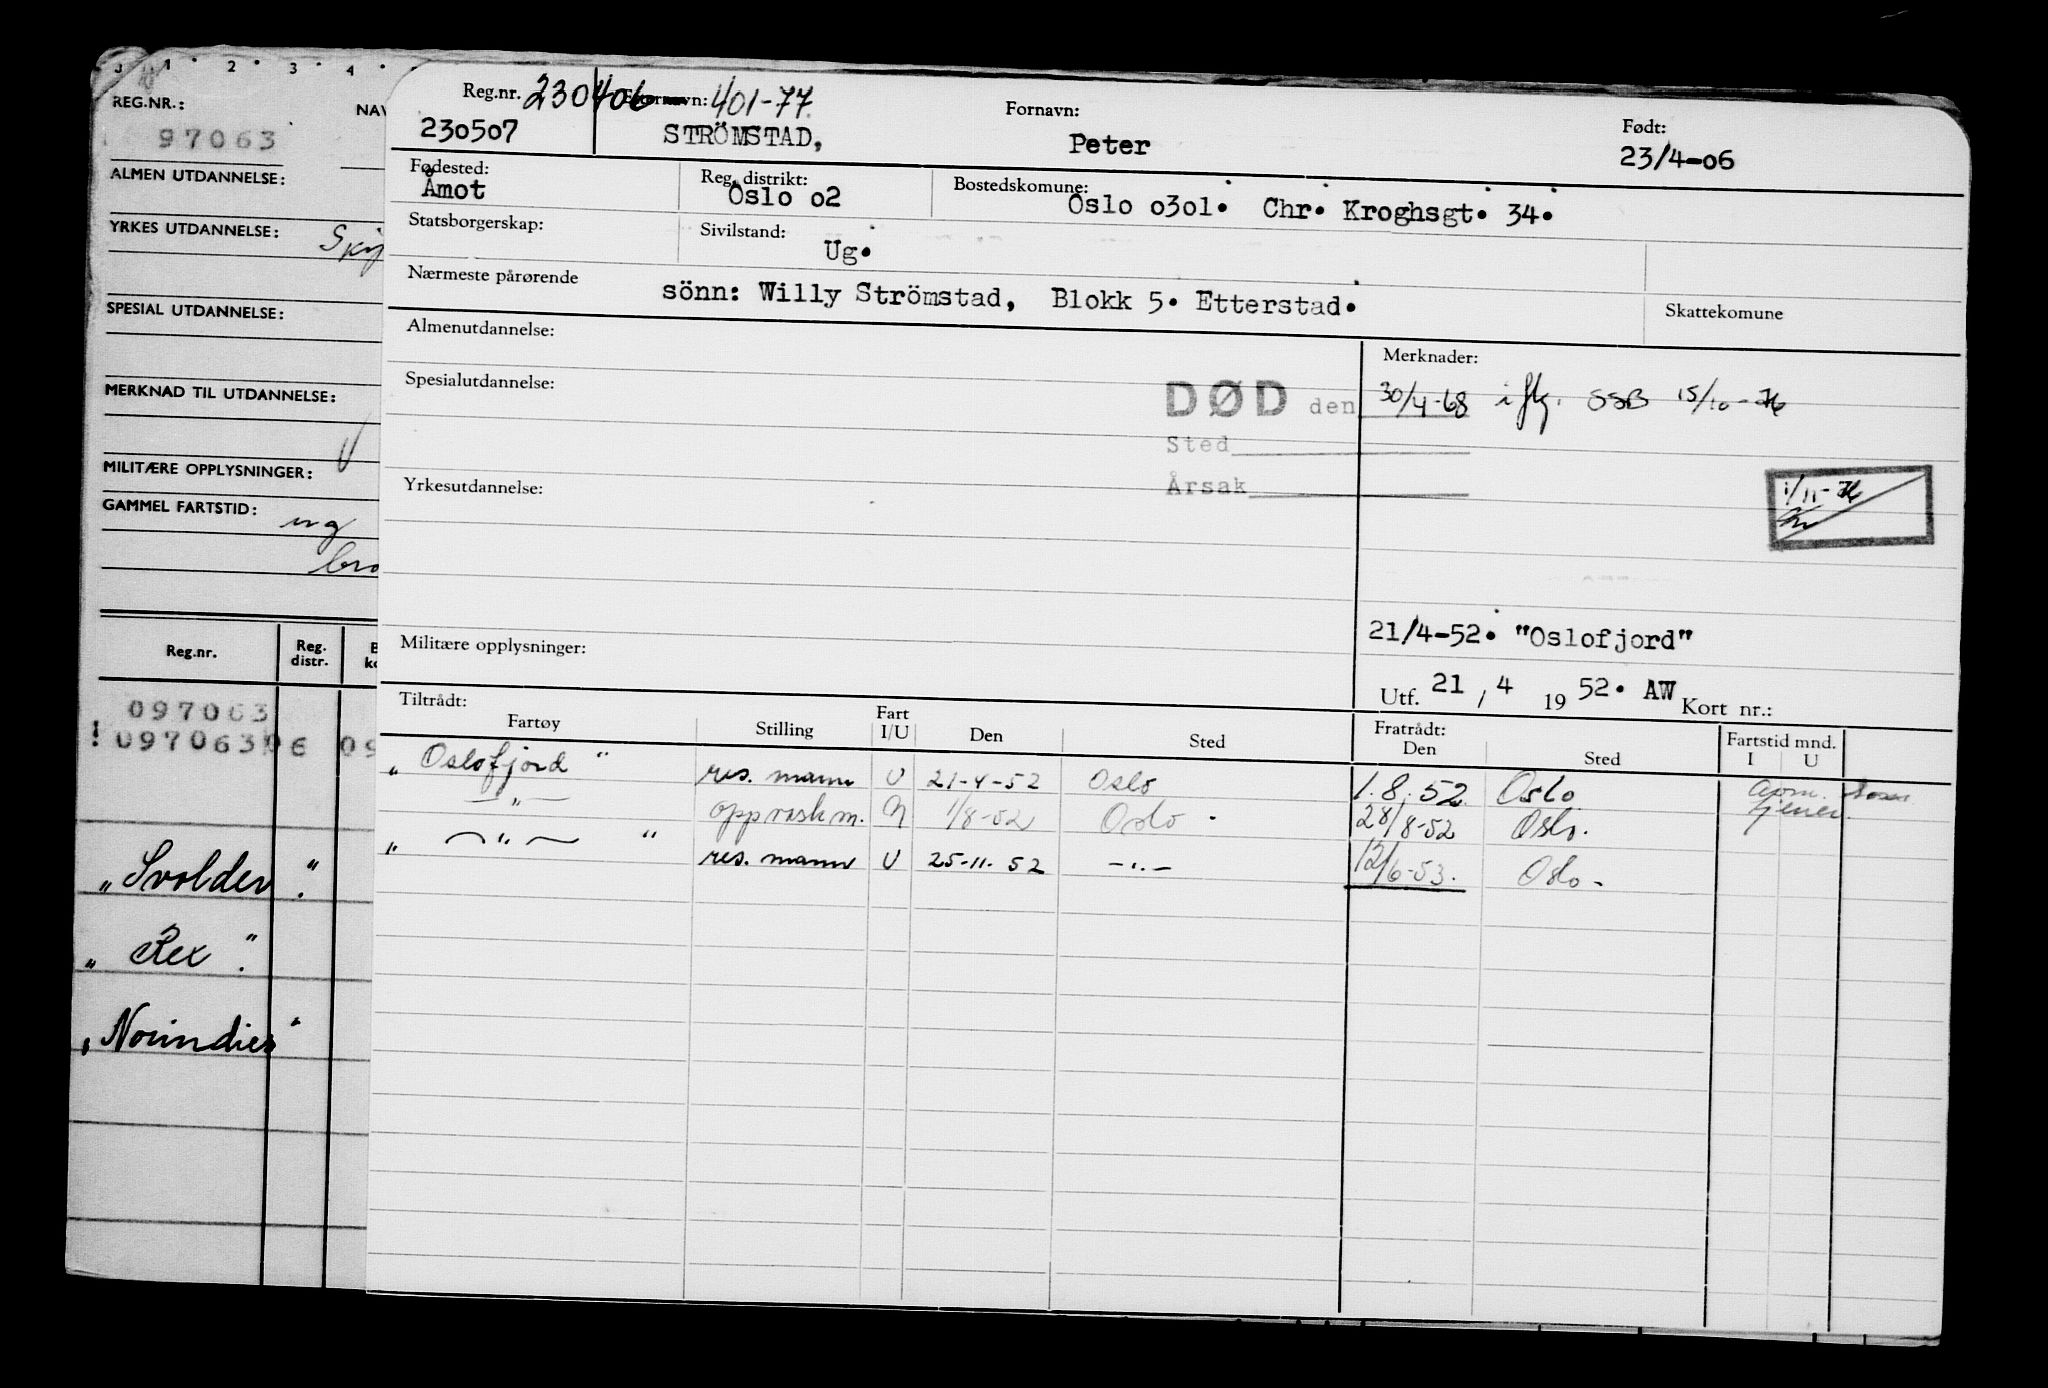 1 2 3 4
REG.NR.:
NAV
97063
ALMEN UTDANNELSE:
YRKES UTDANNELSE:
SPESIAL UTDANNELSE:
MERKNAD TIL UTDANNELSE:
MILITÆRE OPPLYSNINGER:
GAMMEL FARTSTID:
ug
Reg.nr. Reg. distr.
097063
! 09706306 09
„Svolder“
„Rex“
„Norindies“
Reg.nr. 230406 Etternavn: 401-77 Fornavn: Født:
230507 STRÖMSTAD, Peter 23/4-06
Fødested: Reg. distrikt: Bostedskomune:
Åmot Oslo o2 Oslo o3o1. Chr. Kroghsgt. 34.
Statsborgerskap: Sivilstand:
Ug.
Nærmeste pårørende
sönn: Willy Strömstad, Blokk 5. Etterstad.
Skattekomune
Almenutdannelse: Merknader:
Spesialutdannelse: DØD den 30/4-68 iflg. SSB 15/10-76
Sted
Yrkesutdannelse: Årsak
1/11-76
21/4-52. "Oslofjord"
Militære opplysninger:
Utf. 21 / 4 1952. AW Kort nr.:
Tiltrådt: Fratrådt:
Fartøy Stilling Fart I/U Den Sted Den Sted Fartstid mnd. I U
„Oslofjord“ res. mann U 21-4-52 Oslo 1.8.52 Oslo
—"— oppvaskm. N 1/8-52 Oslo. 28/8-52 Oslo.
„ —"— “ res. mann U 25-11-52 —"— 12/6-53. Oslo-